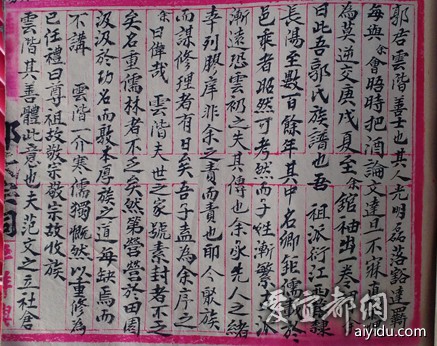 郭君雲階善士也其人光明磊落豁達
每與余會晤時把酒論文達旦不寐真
為莫逆交庚戌夏至余館袖出一卷
曰此吾郭氏族譜也吾 祖派衍江西隸
長陽至數百餘年其中名卿能儒於
邑乘者昭然可考然而子姓漸繁派
漸遠恐雲礽之失其傳也余承先人之緒
幸列膠庠非余之責而責也耶今敬族
而謀修理者有日矣吾子盍為余序之
余曰偉哉 雲階夫世之家號素封者不乏
矣名重儒林者不乏矣然第營營於田園
汲汲於功名而敦本厚族之道每缺焉而
不講 雲階一介寒儒獨慨然以重修為
己任禮曰尊祖故敬宗敬宗故收族
雲階其善體此意也夫范文之立社倉
爱宜都网
aiyidu.com